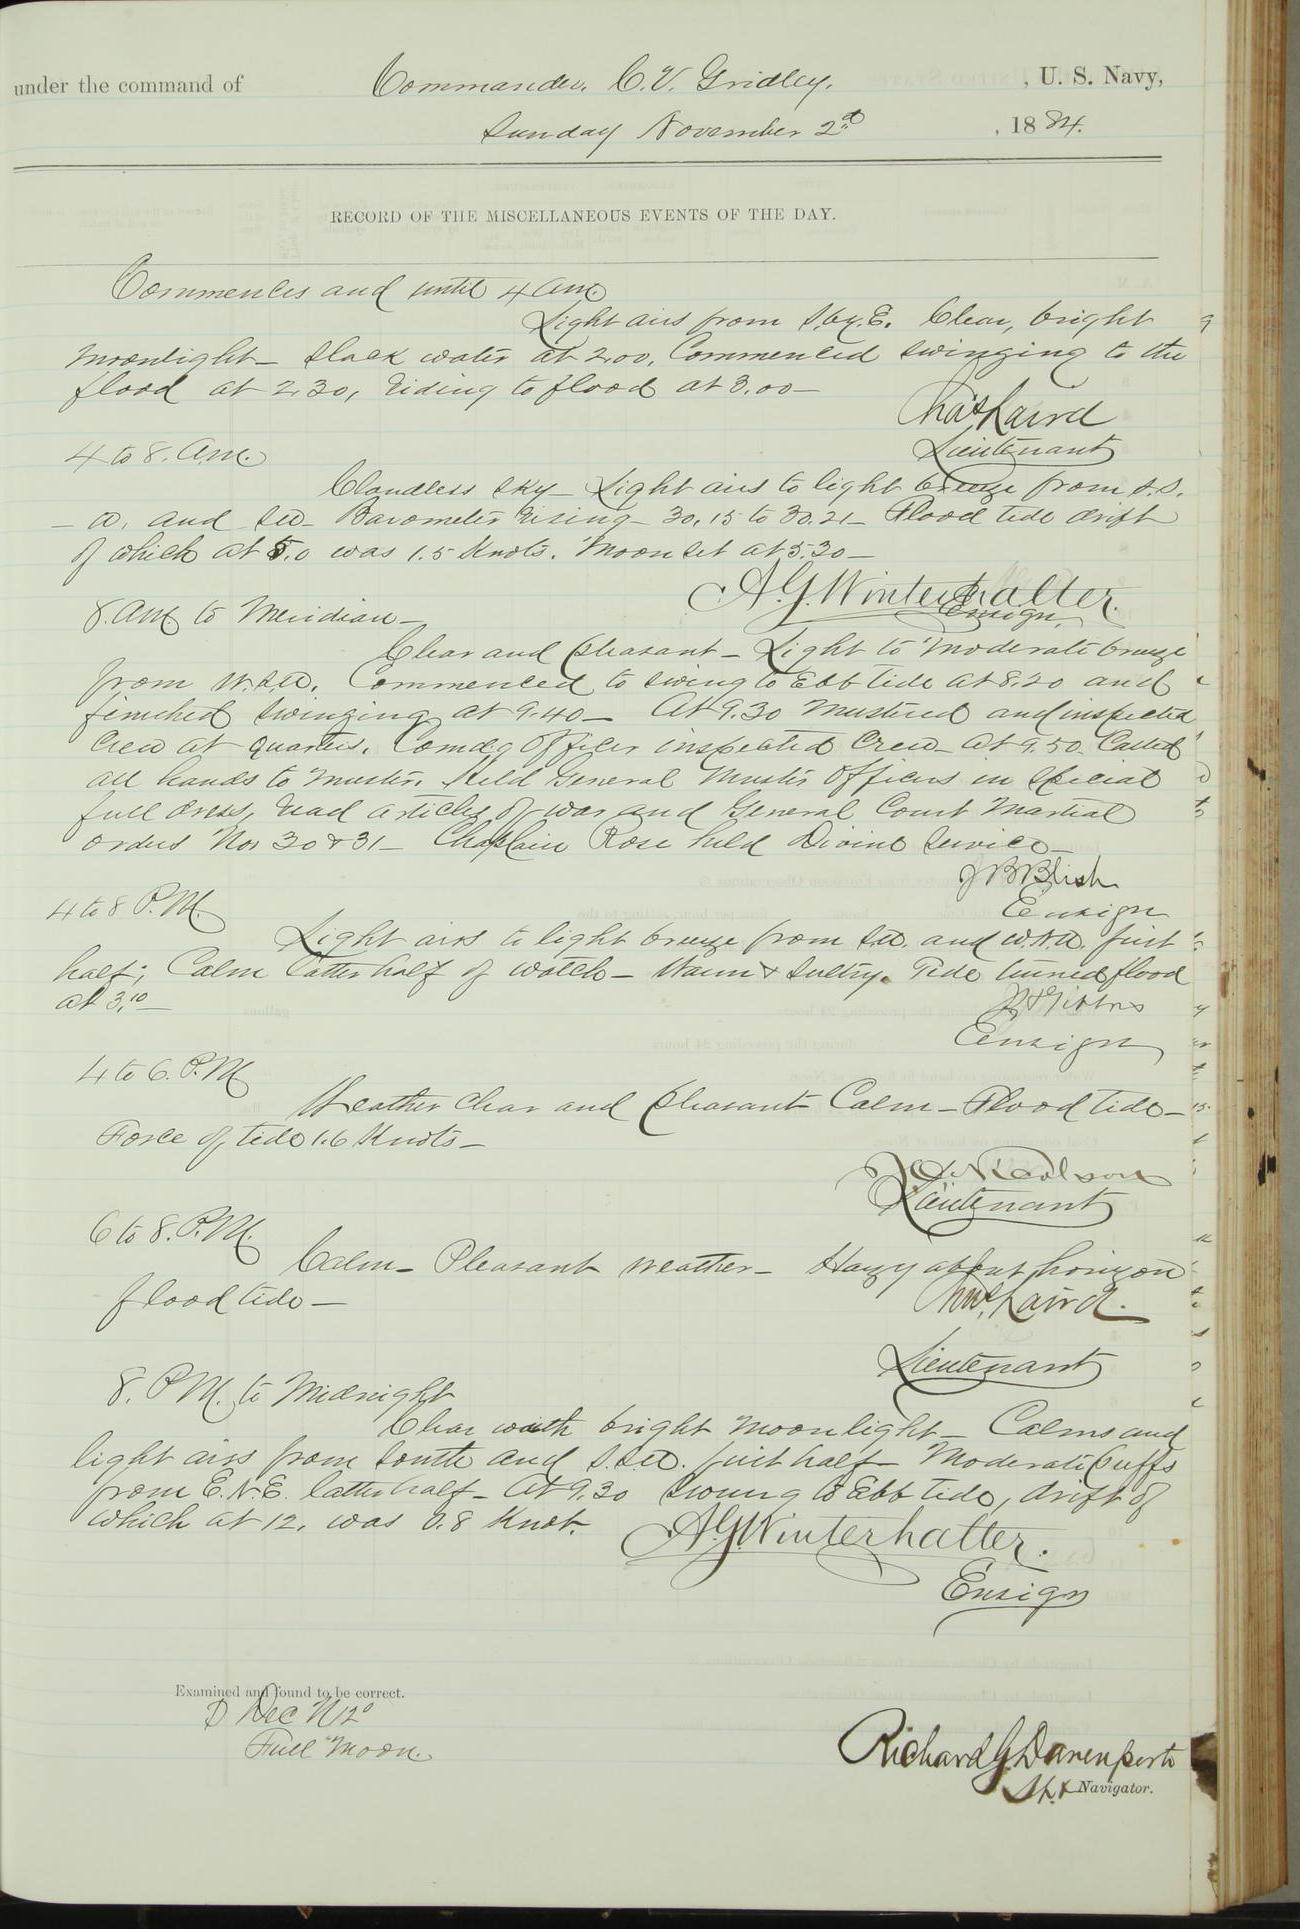 under the command of Commander. C. V. Gridley. , U. S. Navy,
Sunday November 2d , 1884.
RECORD OF THE MISCELLANEOUS EVENTS OF THE DAY.
Commences and until 4 am.
Light airs from S.by.E. Clear, bright
moonlight- Slack water at 2.00. Commenced swinging to the
flood at 2.30, riding to flood at 3.00-
Chas Laird
Lieutenant
4 to 8. A.m.
Cloudless sky- Light airs to light breeze from S.S.
- W. and SW- Barometer rising- 30.15 to 30.21- Flood tide drift
of which at 5.0 was 1.5 Knots. Moon set at 5.30-
A.G. Winterhalter.
Ensign.
8. Am to Meridian-
Clear and pleasant- Light to moderate breeze
from W.SW. Commenced to swing to Ebb tide at 8.20 and
finished swinging at 9.40- At 9.30 mustered and inspected
crew at quarters. Comdg Officer inspected crew- At 9.50 Called
all hands to muster. Held General Muster Officers in special
full dress, read articles of war and General Court Martial
orders Nos 30 & 31- Chaplain Rose held Divine Service-
J B Blish
Ensign
4 to 8 P.M.
Light airs to light breeze from SW. and W.N.W. first
half; Calm latter half of watch- Warm & Sultry. Tide turned flood
at 3.10-
Ensign
4 to 6. P.M
Weather clear and pleasant Calm- Flood tide-
Force of tide 1.6 Knots-
Lieutenant
6 to 8. P.M.
Calm- Pleasant weather- Hazy about horizon
flood tide-
Chas Laird.
Lieutenant
8. P.M. to Midnight
Clear with bright moonlight- Calms and
light airs from South and S.SW. first half- Moderate puffs
from E.N.E. latter half- At 9.30 swung to Ebb tide, drift of
which at 12. was 0.8 Knot.
A.G. Winterhalter.
Ensign
Examined and found to be correct.
Dec N 12°
Full Moon.
Richard G. Davenport
Navigator.